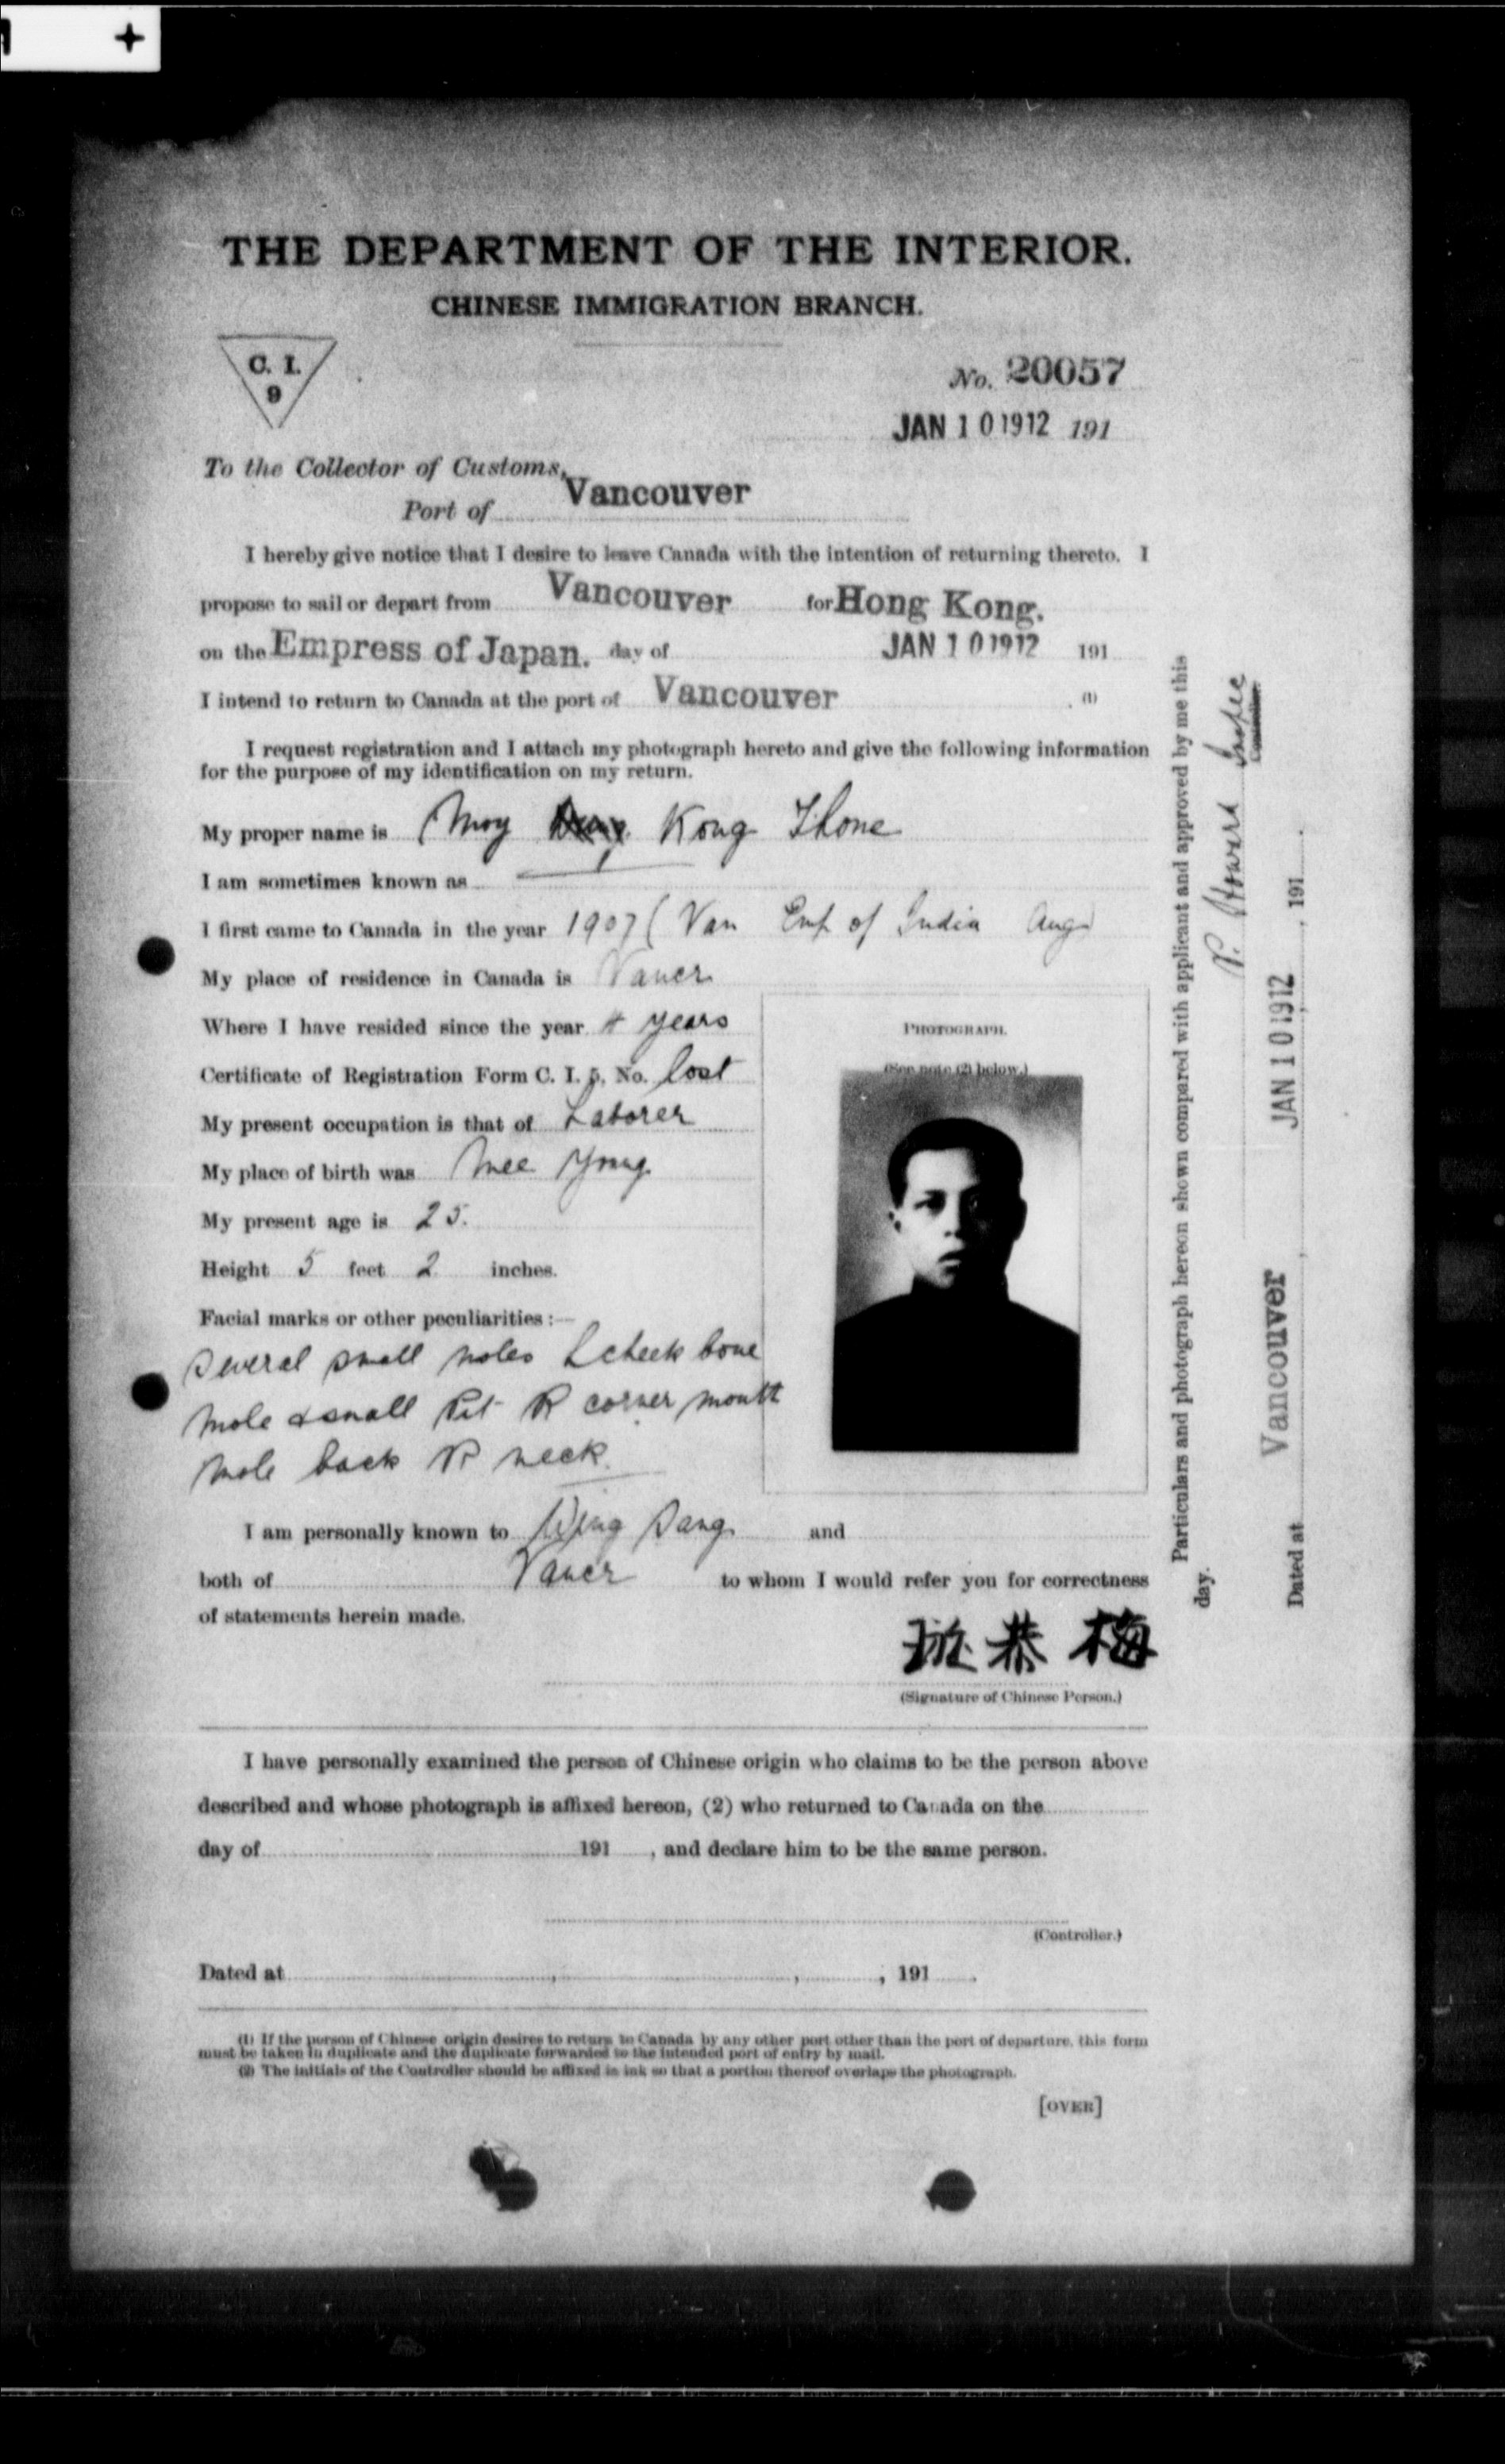 THE DEPARTMENT OF THE INTERIOR.
CHINESE IMMIGRATION BRANCH.
C. I.
9
No. 20057
JAN 10 1912 191
To the Collector of Customs,
Port of Vancouver
I hereby give notice that I desire to leave Canada with the intention of returning thereto. I
propose to sail or depart from Vancouver for Hong Kong.
on the Empress of Japan. day of JAN 10 1912 191
I intend to return to Canada at the port of Vancouver (1)
I request registration and I attach my photograph hereto and give the following information
for the purpose of my identification on my return.
My proper name is Moy Kong Thone
I am sometimes known as
I first came to Canada in the year 1907 (Van Emp of India Aug)
My place of residence in Canada is Vancr
Where I have resided since the year 4 years
Certificate of Registration Form C. I. 5, No. lost
My present occupation is that of Laborer
My place of birth was Mee Yong
My present age is 25.
Height 5 feet 2 inches.
Facial marks or other peculiarities:—
Several small moles L cheek bone
Mole & small Pit R corner mouth
Mole back R neck.
PHOTOGRAPH.
(See note (2) below.)
I am personally known to Wing Sang and
both of Vancr to whom I would refer you for correctness
of statements herein made.
恭 梅
(Signature of Chinese Person.)
I have personally examined the person of Chinese origin who claims to be the person above
described and whose photograph is affixed hereon, (2) who returned to Canada on the
day of 191 , and declare him to be the same person.
(Controller.)
Dated at , , 191 .
(1) If the person of Chinese origin desires to return to Canada by any other port other than the port of departure, this form
must be taken in duplicate and the duplicate forwarded to the intended port of entry by mail.
(2) The initials of the Controller should be affixed in ink so that a portion thereof overlaps the photograph.
[OVER]
Particulars and photograph hereon shown compared with applicant and approved by me this
day.
P. Howard
Controller.
Dated at Vancouver, JAN 10 1912, 191 .